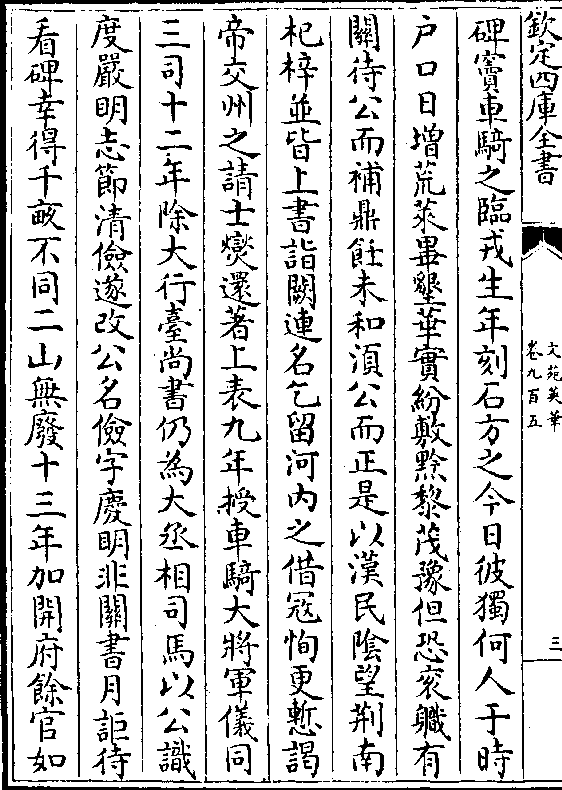 欽定四庫全書
文苑英華
卷九百五
三
碑竇車騎之臨戎生年刻石方之今日彼獨何人于時
户口日增荒萊畢墾華實紛敷黔黎茂豫但恐衮職有
闕待公而補鼎飪未和湏公而正是以漢民陰望荆南
杞梓並皆上書詣闕連名乞留河内之借冦恂更慙謁
帝交州之請士燮還著上表九年授車騎大將軍儀同
三司十二年除大行臺尚書仍為大丞相司馬以公識
度嚴明志節清儉遂改公名儉字慶明非關書月詎待
看碑幸得千畝不同二山無廢十三年加開府餘官如